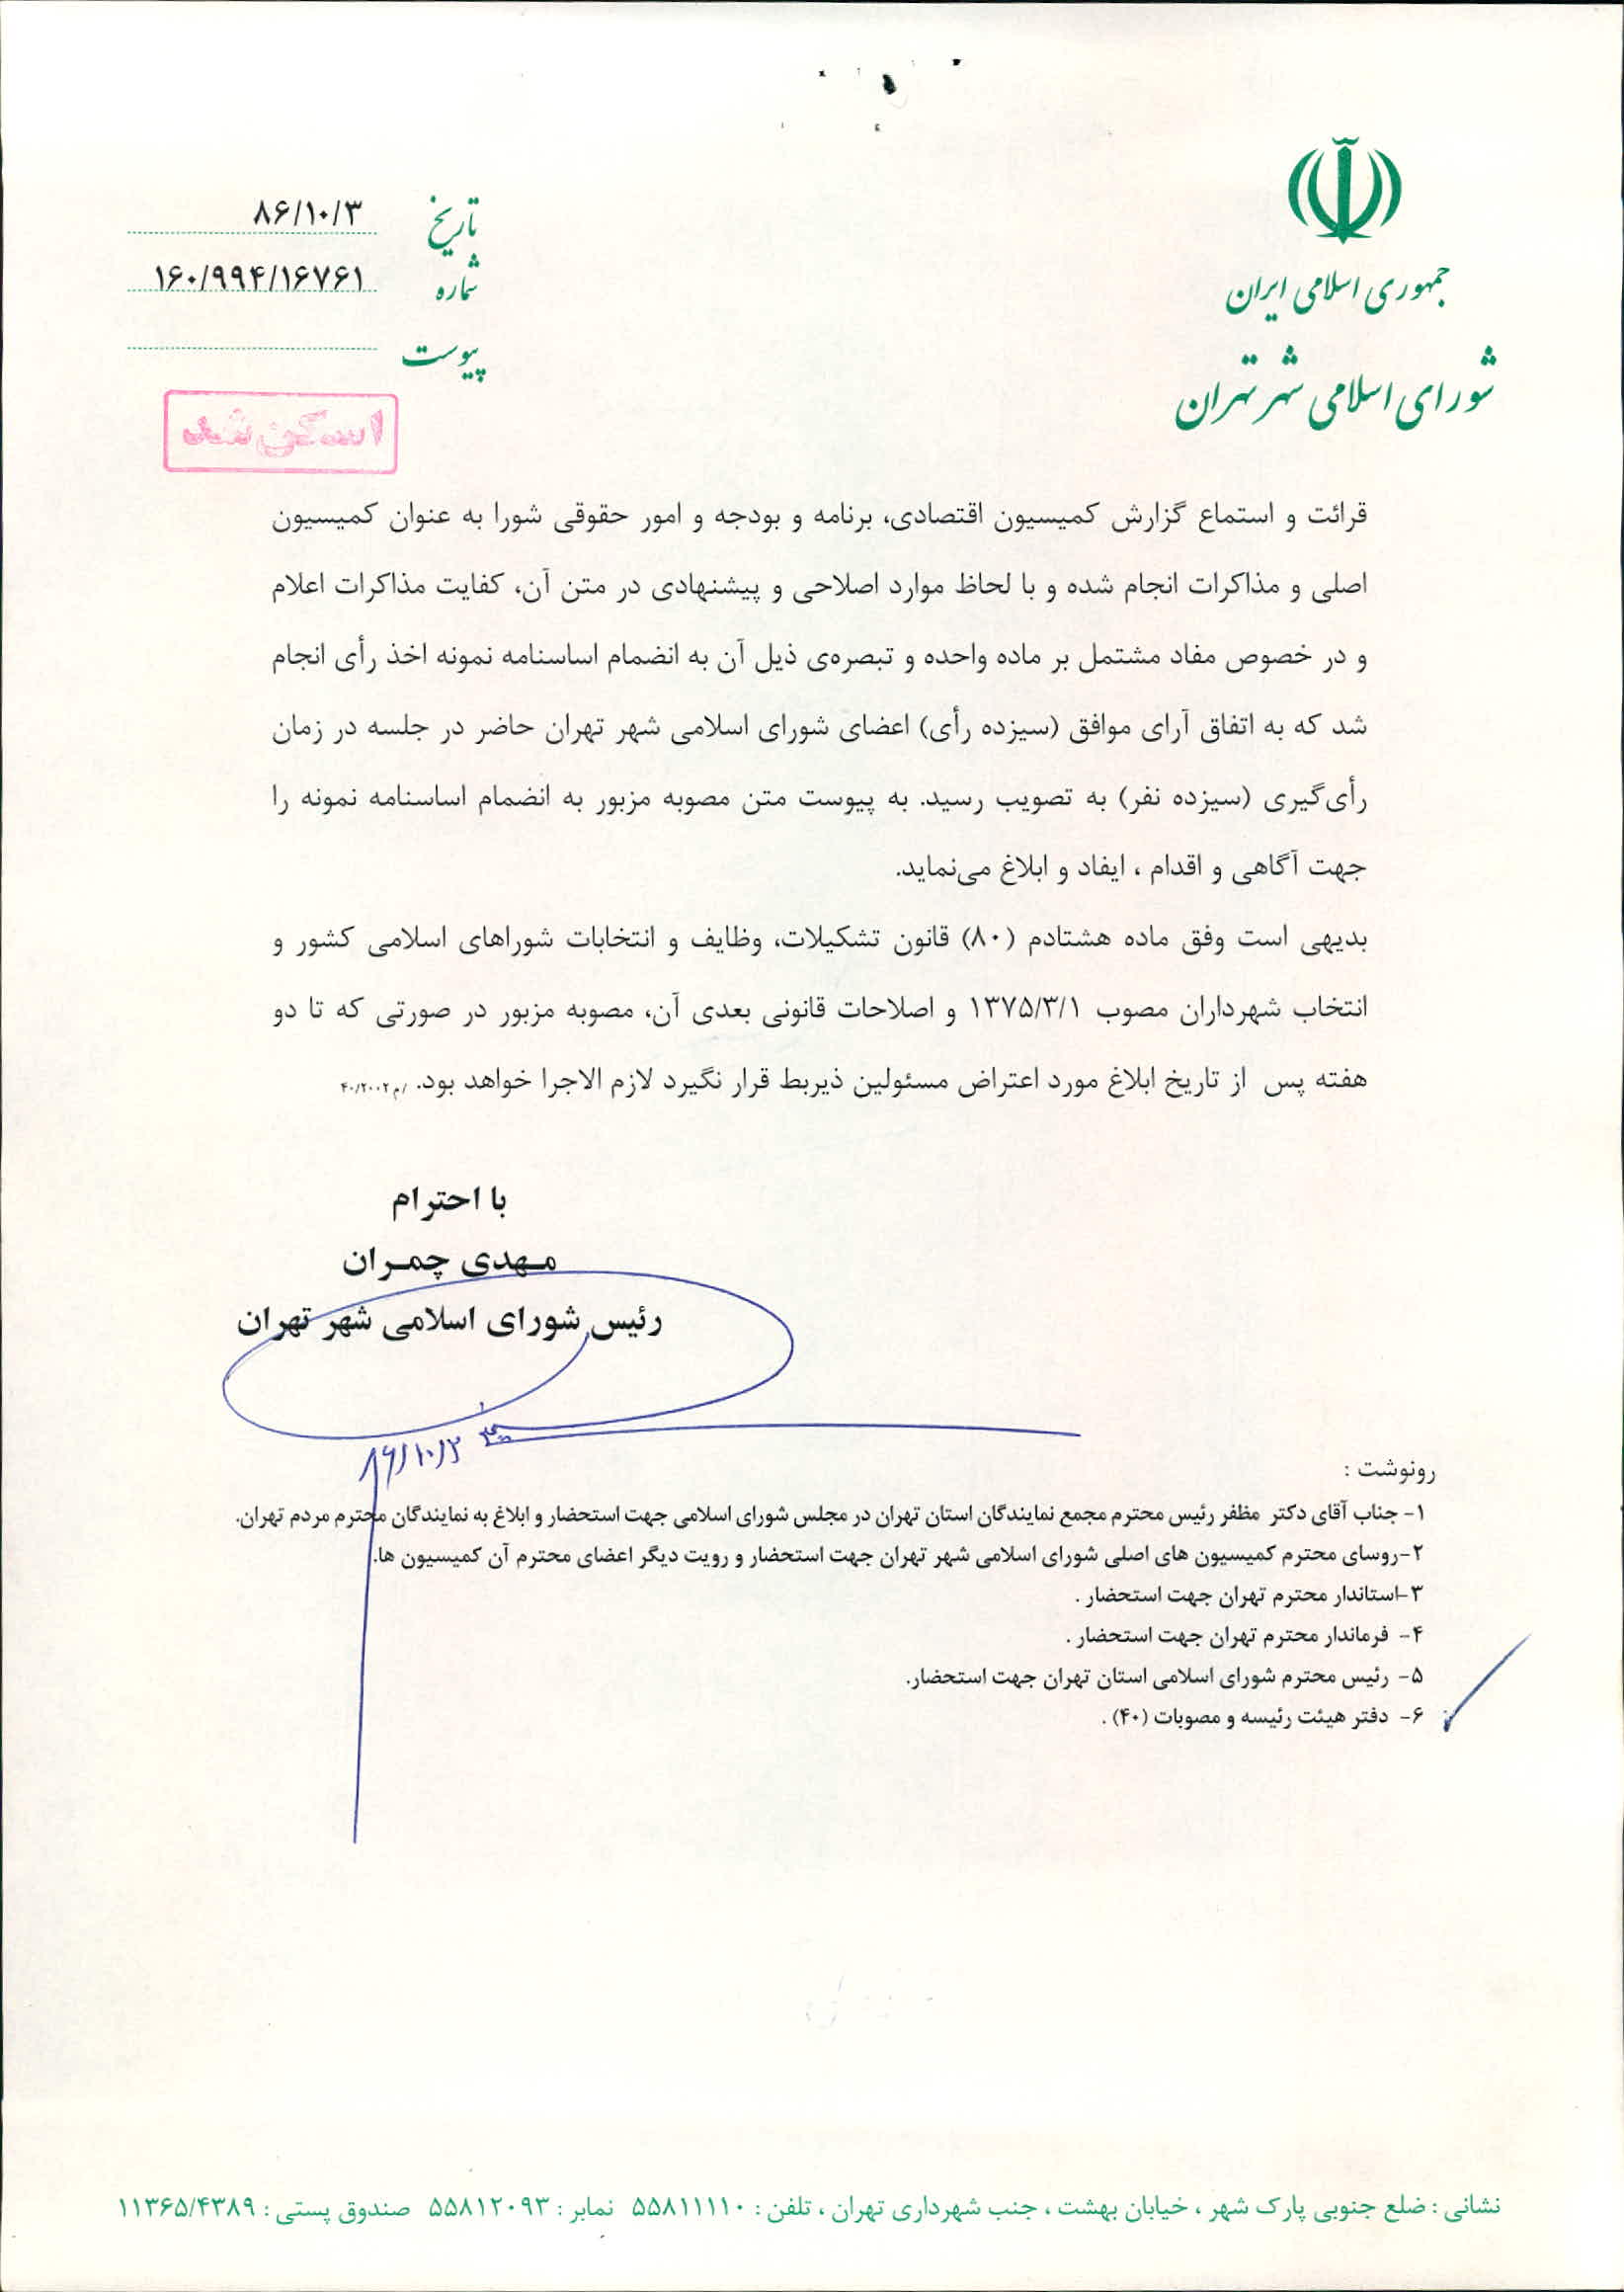 جمهوری اسلامی ایران
شورای اسلامی شهر تهران
تاریخ ۸۶/۱۰/۳
شماره ۱۶۰/۹۹۴/۱۶۷۶۱
پیوست
اسکن شد
قرائت و استماع گزارش کمیسیون اقتصادی، برنامه و بودجه و امور حقوقی شورا به عنوان کمیسیون
اصلی و مذاکرات انجام شده و با لحاظ موارد اصلاحی و پیشنهادی در متن آن، کفایت مذاکرات اعلام
و در خصوص مفاد مشتمل بر ماده واحده و تبصره‌ی ذیل آن به انضمام اساسنامه نمونه اخذ رأی انجام
شد که به اتفاق آرای موافق (سیزده رأی) اعضای شورای اسلامی شهر تهران حاضر در جلسه در زمان
رأی‌گیری (سیزده نفر) به تصویب رسید. به پیوست متن مصوبه مزبور به انضمام اساسنامه نمونه را
جهت آگاهی و اقدام ، ایفاد و ابلاغ می‌نماید.
بدیهی است وفق ماده هشتادم (۸۰) قانون تشکیلات، وظایف و انتخابات شوراهای اسلامی کشور و
انتخاب شهرداران مصوب ۱۳۷۵/۳/۱ و اصلاحات قانونی بعدی آن، مصوبه مزبور در صورتی که تا دو
هفته پس از تاریخ ابلاغ مورد اعتراض مسئولین ذیربط قرار نگیرد لازم الاجرا خواهد بود. /م۴۰/۲۰۰۲
با احترام
مهدی چمران
رئیس شورای اسلامی شهر تهران
۸۶/۱۰/۳
رونوشت :
۱- جناب آقای دکتر مظفر رئیس محترم مجمع نمایندگان استان تهران در مجلس شورای اسلامی جهت استحضار و ابلاغ به نمایندگان محترم مردم تهران.
۲-روسای محترم کمیسیون های اصلی شورای اسلامی شهر تهران جهت استحضار و رویت دیگر اعضای محترم آن کمیسیون ها.
۳-استاندار محترم تهران جهت استحضار .
۴- فرماندار محترم تهران جهت استحضار .
۵- رئیس محترم شورای اسلامی استان تهران جهت استحضار.
۶- دفتر هیئت رئیسه و مصوبات (۴۰) .
نشانی : ضلع جنوبی پارک شهر ، خیابان بهشت ، جنب شهرداری تهران ، تلفن : ۵۵۸۱۱۱۱۰ نمابر : ۵۵۸۱۲۰۹۳ صندوق پستی : ۱۱۳۶۵/۴۳۸۹